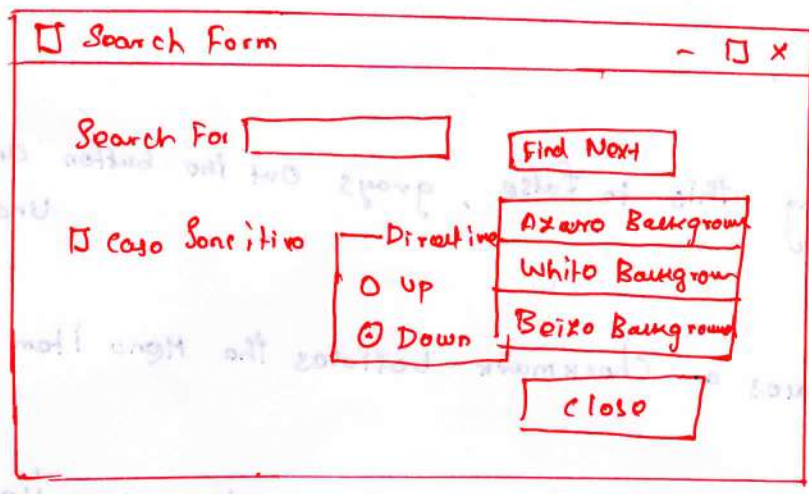 Search Form
Search For
Find Next
Case Sensitive
Direction
Up
Down
Azure Background
White Background
Beize Background
Close